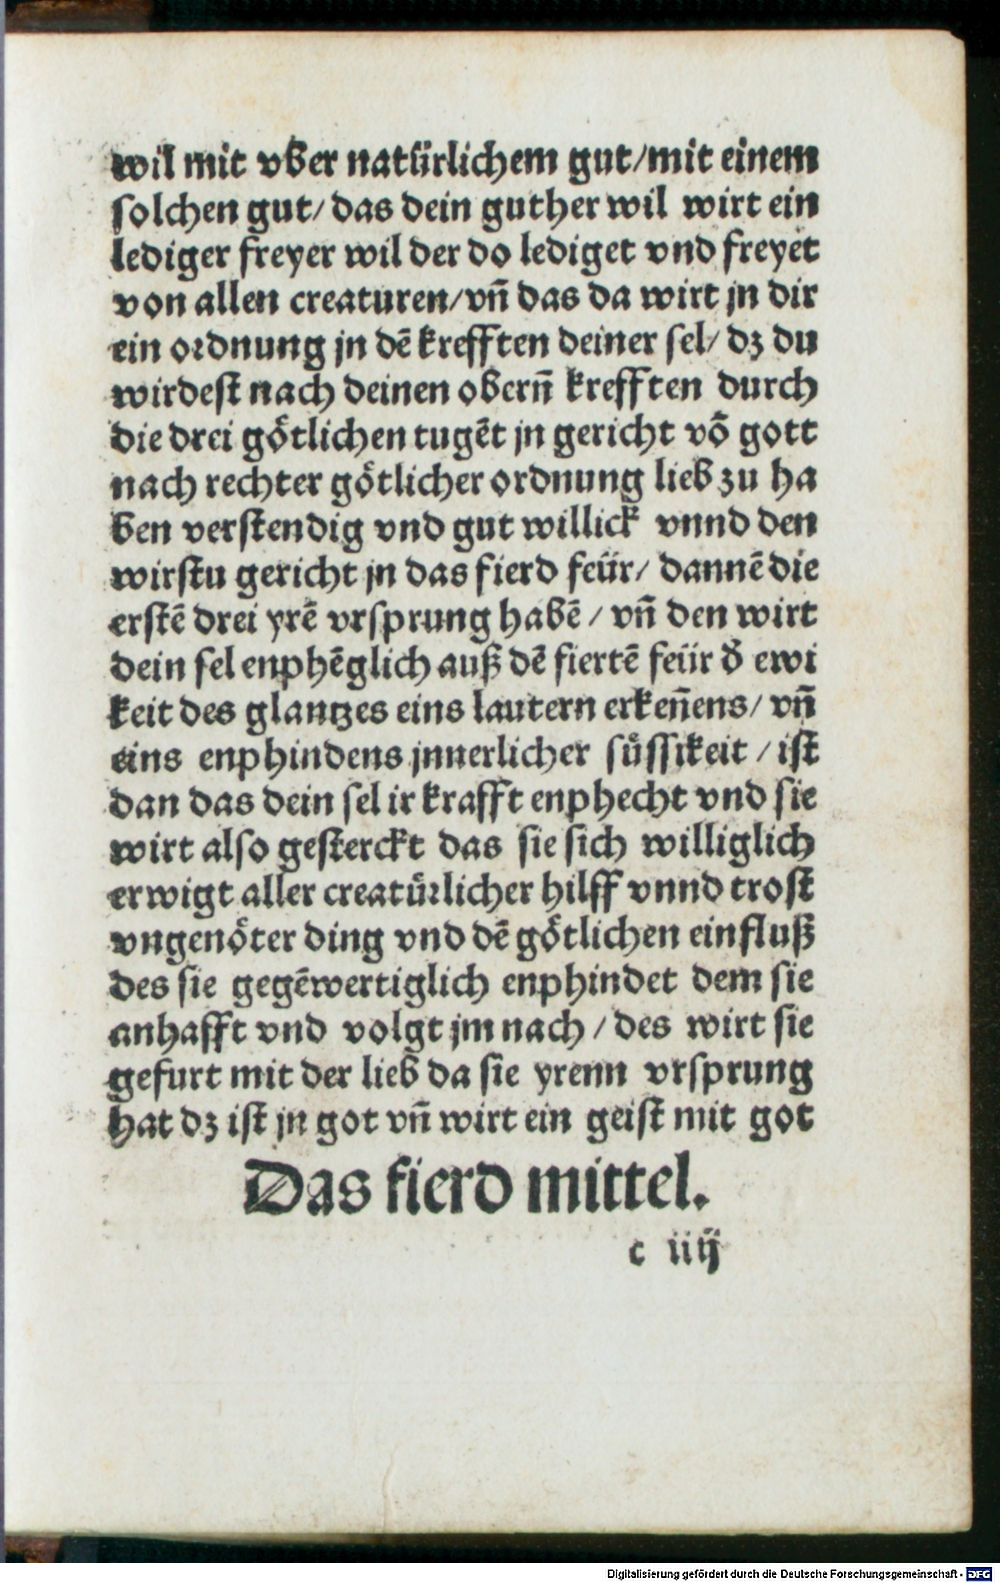 wil mit vber natürlichem gut/mit einem
solchen gut/ das dein guther wil wirt ein
lediger freyer wil der do lediget vnd freyet
von allen creaturen/vn̄ das da wirt jn dir
ein ordnung jn dē krefften deiner sel/ dz du
wirdest nach deinen obern̄ krefften durch
die drei götlichen tugēt jn gericht vō gott
nach rechter götlicher ordnung lieb zu ha
ben verstendig vnd gut willick vnnd den
wirstu gericht jn das fierd feür/ dannē die
erstē drei yrē vrsprung habē / vn̄ den wirt
dein sel enphēglich auß dē fiertē feür d̄ ewi
keit des glantzes eins lautern erken̄ens/ vn̄
eins enphindens jnnerlicher süssikeit / ist
dan das dein sel ir krafft enphecht vnd sie
wirt also gesterckt das sie sich williglich
erwigt aller creatürlicher hilff vnnd trost
vngenöter ding vnd dē götlichen einfluß
des sie gegēwertiglich enphindet dem sie
anhafft vnd volgt jm nach / des wirt sie
gefurt mit der lieb da sie yrenn vrsprung
hat dz ist jn got vn̄ wirt ein geist mit got
Das fierd mittel.
c iiij
Digitalisierung gefördert durch die Deutsche Forschungsgemeinschaft - DFG